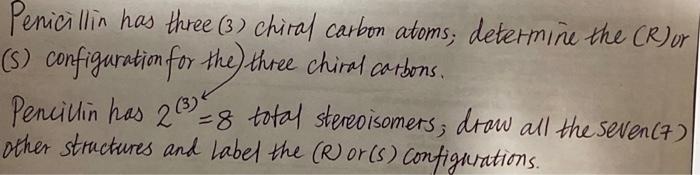 Penicillin has three (3) chiral carbon atoms; determine the (R) or
(S) configuration for the) three chiral carbons.
Pencillin has 2^(3) = 8 total stereoisomers; draw all the seven (7)
other structures and Label the (R) or (s) configurations.